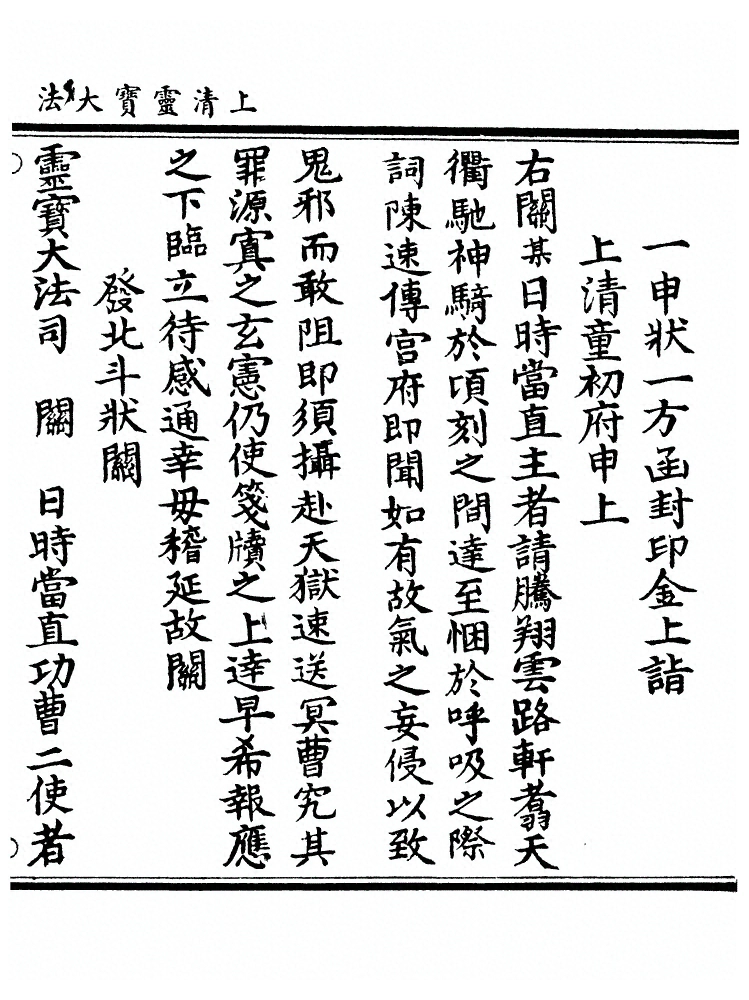 上清靈寶大法
一申狀一方函封印金上詣
上清童初府申上
右關某日時當直主者請騰翔雲路軒翥天
衢馳神騎於頃刻之間達至悃於呼吸之際
詞陳速傳宮府即聞如有故氣之妄侵以致
鬼邪而敢阻即須攝赴天獄速送冥曹究其
罪源寘之玄憲仍使箋牘之上達早希報應
之下臨立待感通幸毋稽延故關
發北斗狀關
靈寶大法司 關 日時當直功曹二使者